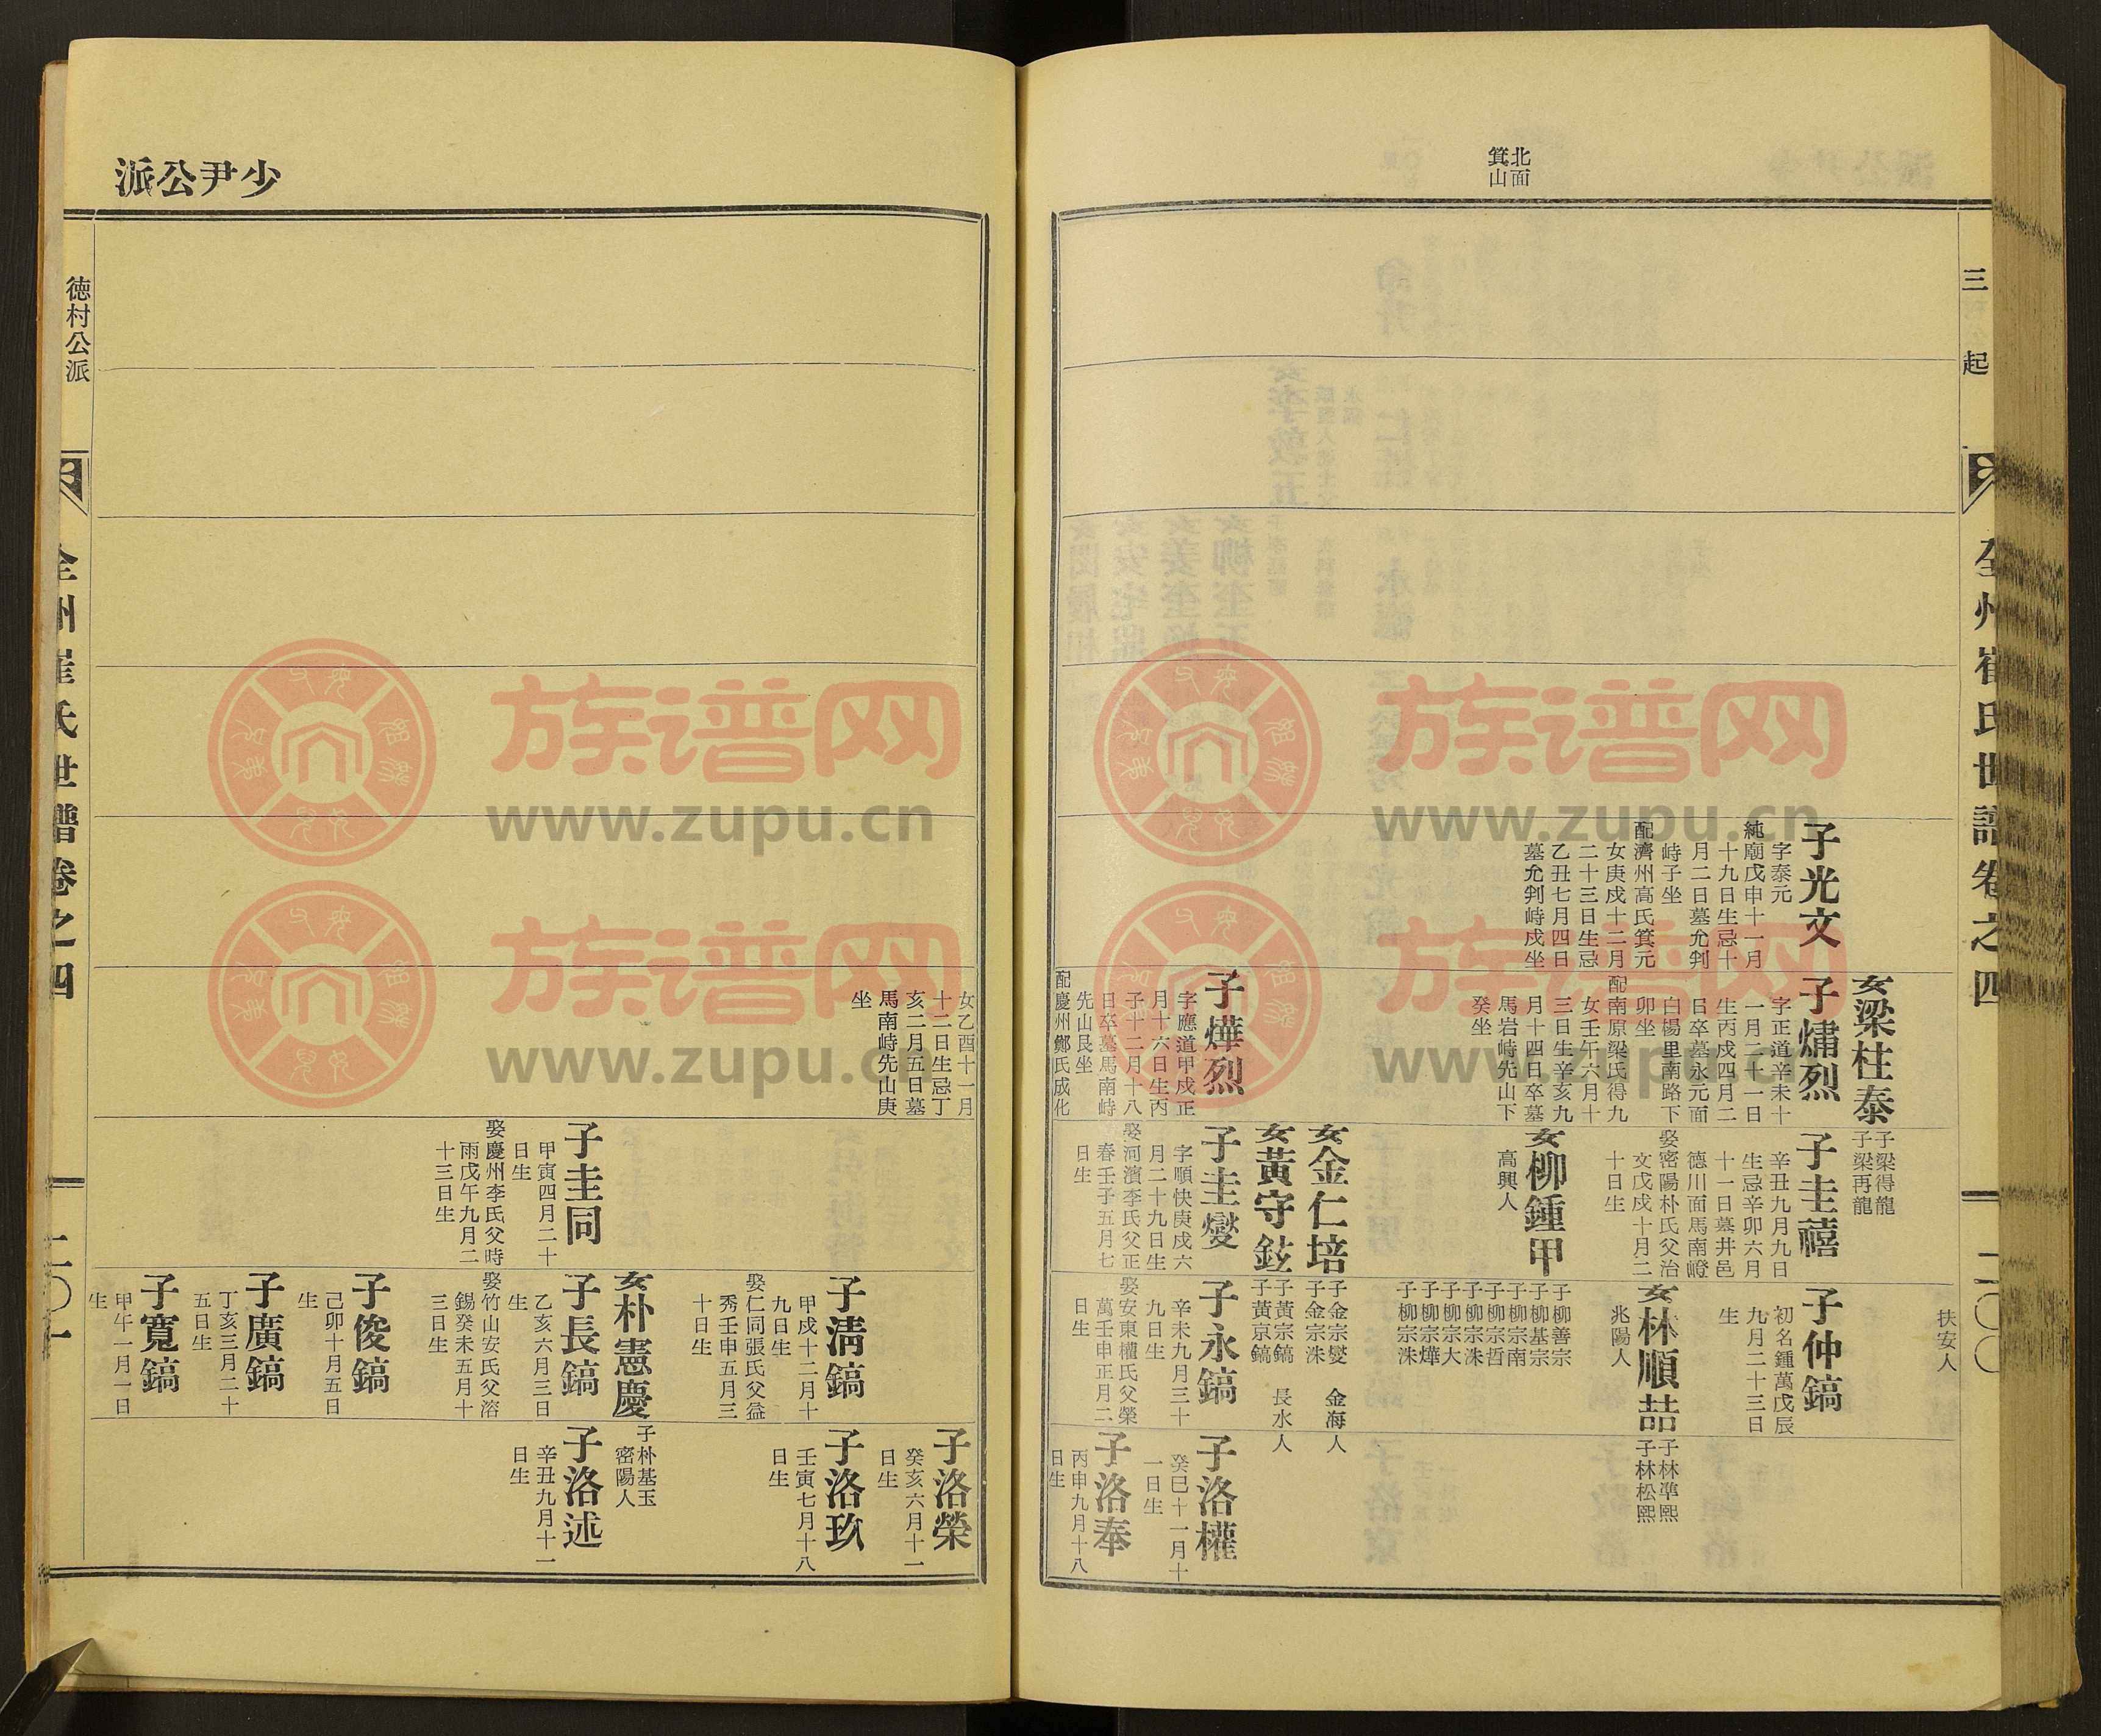 北面
箕山
三起
全州崔氏世譜卷之四
二〇〇
女梁柱泰
子梁得龍
子梁再龍
扶安人
子光文
字泰元
純廟戊申十一月
十九日生忌十
月二日墓允判
峙子坐
配濟州高氏箕元
女庚戌十二月
二十三日生忌
乙丑七月四日
墓允判峙戌坐
子爀烈
字正道辛未十
一月二十一日
生丙戌四月二
日卒墓永元面
白楊里南路下
卯坐
配南原梁氏得九
女壬午六月十
三日生辛亥九
月十四日卒墓
馬岩峙先山下
癸坐
子圭禧
辛丑九月九日
生忌辛卯六月
十一日墓井邑
德川面馬南嶝
娶密陽朴氏父治
文戊戌十月二
十日生
子仲鎬
初名鍾萬戊辰
九月二十三日
生
女林順喆
兆陽人
子林準熙
子林松熙
女柳鍾甲
高興人
子柳善宗
子柳基宗
子柳宗南
子柳宗哲
子柳宗洙
子柳宗大
子柳宗燁
子柳宗洙
女金仁培
子金宗燮
子金宗洙
金海人
女黃守鉉
子黃宗鎬
子黃京鎬
長水人
子燁烈
字應道甲戌正
月十六日生丙
子十二月十八
日卒墓馬南峙
先山艮坐
配慶州鄭氏成化
子圭燮
字順快庚戌六
月二十九日生
娶河濱李氏父正
春壬子五月七
日生
子永鎬
辛未九月三十
九日生
娶安東權氏父榮
萬壬申正月二
日生
子洛權
癸巳十一月十
一日生
子洛奉
丙申九月十八
日生
少尹公派
女乙酉十一月
十二日生忌丁
亥二月五日墓
馬南峙先山庚
坐
子洛榮
癸亥六月十一
日生
子淸鎬
甲戌十二月十
九日生
娶仁同張氏父益
秀壬申五月三
十日生
子洛玖
壬寅七月十八
日生
女朴憲慶
子朴基玉
密陽人
子圭同
甲寅四月二十
日生
娶慶州李氏父時
雨戊午九月二
十三日生
子長鎬
乙亥六月三日
生
娶竹山安氏父溶
錫癸未五月十
三日生
子洛述
辛丑九月十一
日生
子俊鎬
己卯十月五日
生
子廣鎬
丁亥三月二十
五日生
子寬鎬
甲午一月一日
生
德村公派
全州崔氏世譜卷之四
二〇一
族谱网
www.zupu.cn
族谱网
www.zupu.cn
族谱网
www.zupu.cn
族谱网
www.zupu.cn